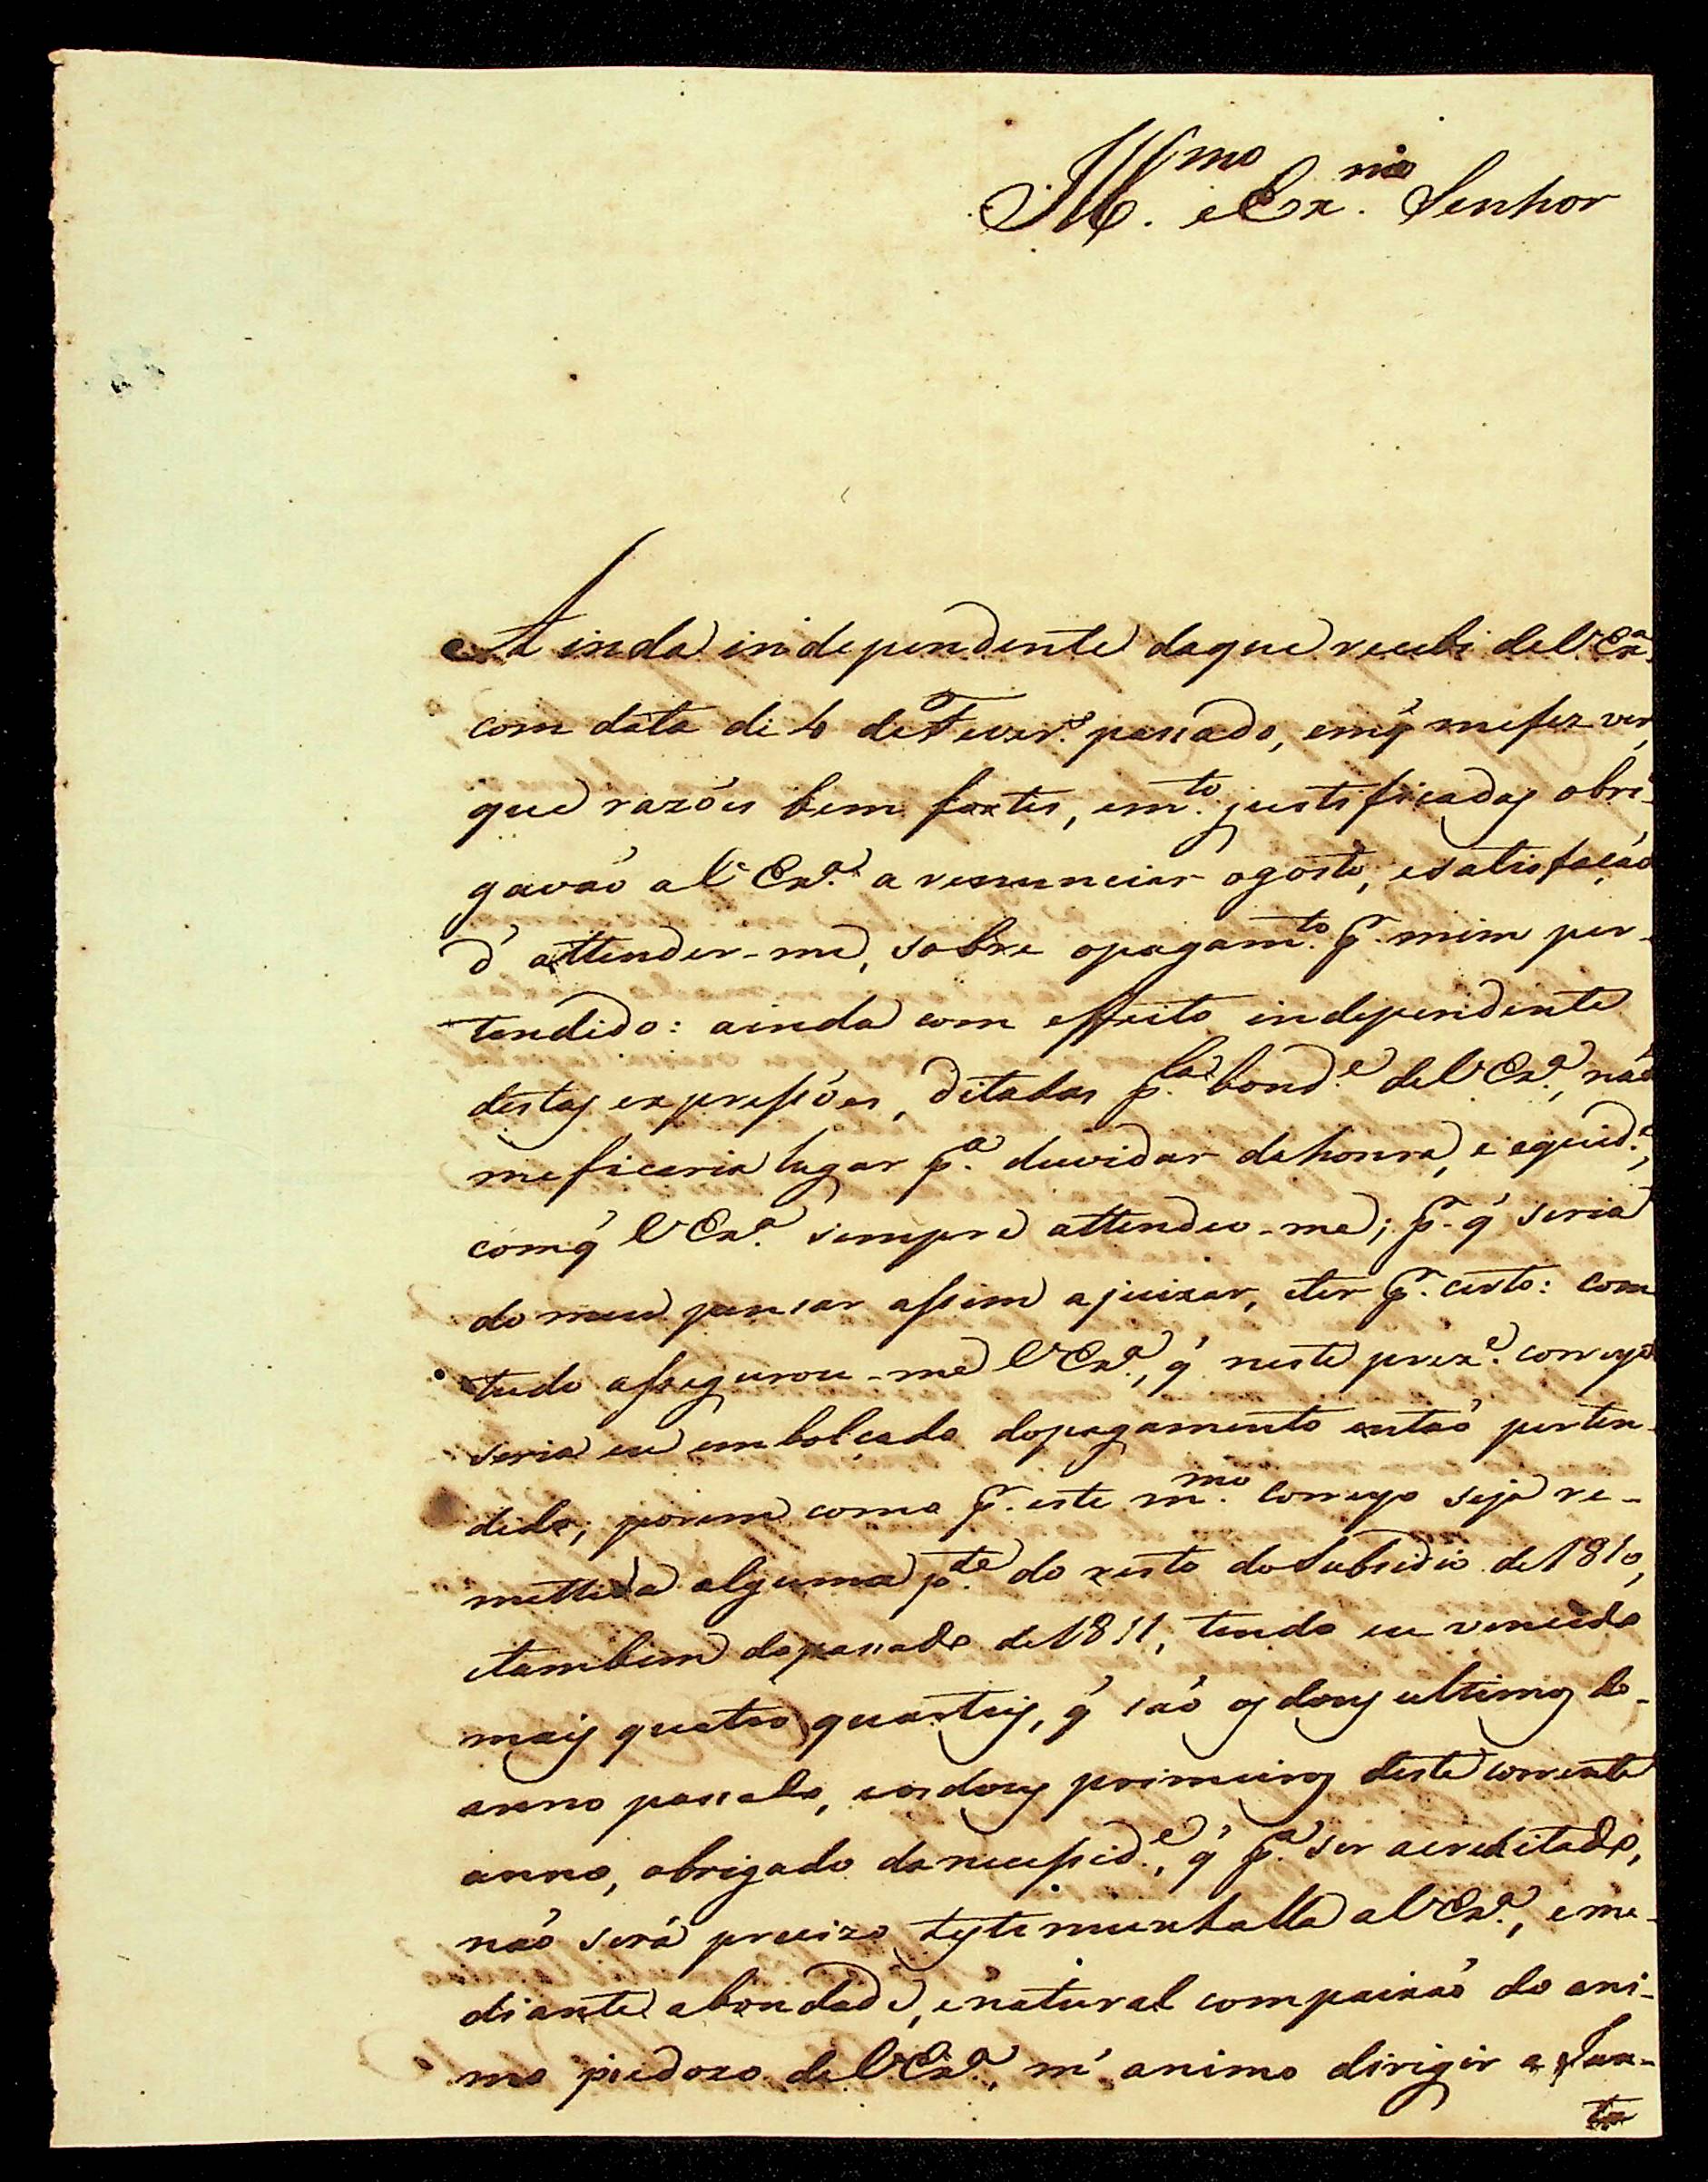 Ill.mo e Ex.mo Senhor
Ainda independente da que recebi de V Ex.a
com data de 4 de Fever.o passado, em q' me fez ver,
que razões bem fortes, e m.to justificadas obri-
gavaõ a V Ex.a a renunciar o gosto, e satisfaçaõ
d' attender-me, sobre o pagam.to p.r mim per-
tendido: ainda com effeito independente
destas expressões, ditadas p.la bond.e de V Ex.a, naõ
me ficaria lugar p.a duvidar da honra, e equid.e,
com q' V Ex.a sempre attendeu-me; p.r q' seria
do meu pensar assim ajuizar, e ter p.r certo: com
tudo assegurou-me V Ex.a, q' neste prez.e correyo
seria eu embolçado do pagamento entaõ perten-
dido; porem como p.r este m.mo correyo seja re-
mettida alguma p.te do resto do Subsidio de 1810,
e tambem do passado de 1811, tendo eu vencido
mais quatro quarteis, q' saõ os dous ultimos do
anno passado, e os dous primeiros deste corrente
anno, obrigado da necessid.e, q' p.a ser acreditado,
naõ será precizo testemunhalla a V Ex.a, e me-
diante a bondade, e natural compaixaõ do ani-
mo piedozo de V Ex.a, m' animo dirigir a Jun-
ta